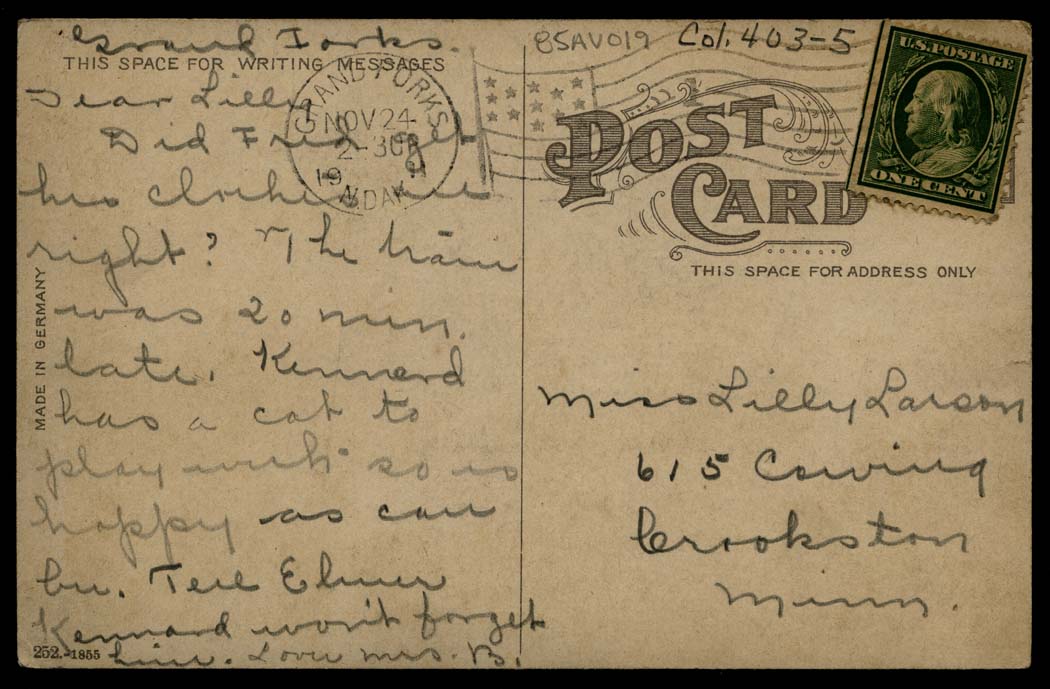 Grand Forks.
THIS SPACE FOR WRITING MESSAGES
Dear Lilly
Did Fred get
his clothes all
right? The train
was 20 min.
late. Kennard
has a cat to
play with so is
happy as can
be. Tell Elmer
Kennard won't forget
him. Love Mrs. B.
MADE IN GERMANY
252.-1855
GRAND FORKS
NOV 24
2-30P
1911
N.DAK.
85AV019 Col. 403-5
U.S. POSTAGE
ONE CENT
POST
CARD
THIS SPACE FOR ADDRESS ONLY
Miss Lilly Larson
615 Cowing
Crookston
Minn.